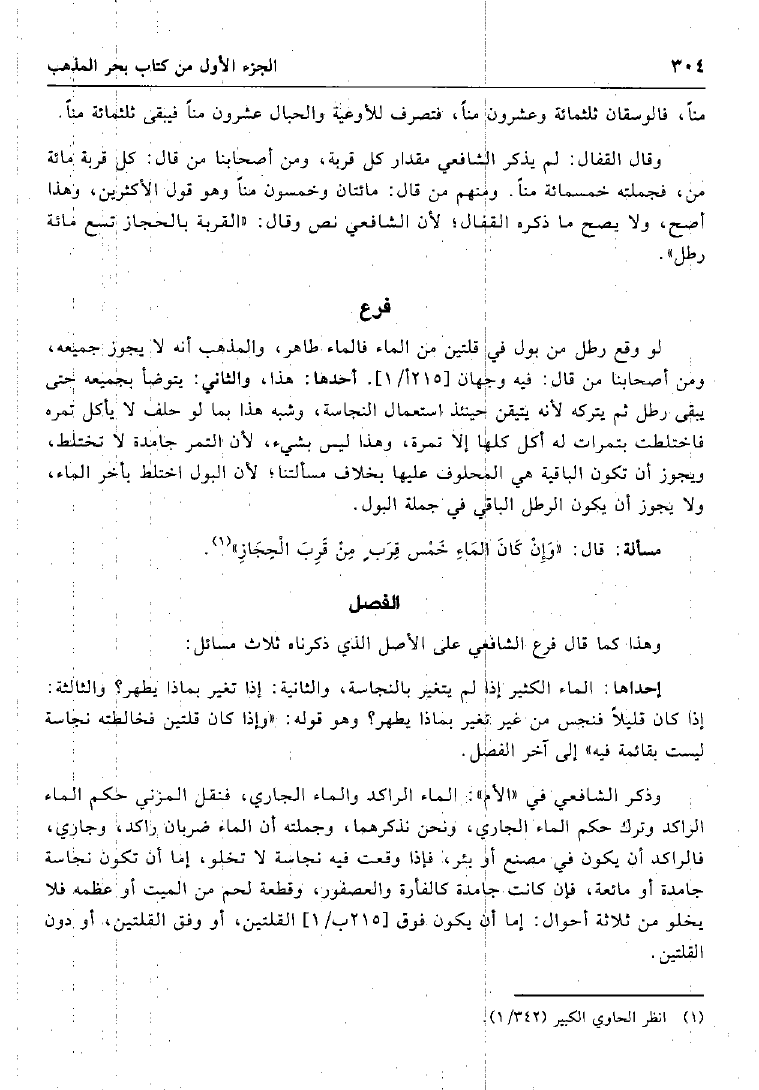 ٣٠٤ الجزء الأول من كتاب بحر المذهب
مناً، فالوسقان ثلثمائة وعشرون مناً، فتصرف للأوعية والحبال عشرون مناً فيبقى ثلثمائة مناً.
وقال القفال: لم يذكر الشافعي مقدار كل قربة، ومن أصحابنا من قال: كل قربة مائة
من، فجملته خمسمائة مناً. ومنهم من قال: مائتان وخمسون مناً وهو قول الأكثرين، وهذا
أصح، ولا يصح ما ذكره القفال؛ لأن الشافعي نص وقال: «القربة بالحجاز تسع مائة
رطل».
فرع
لو وقع رطل من بول في قلتين من الماء فالماء طاهر، والمذهب أنه لا يجوز جميعه،
ومن أصحابنا من قال: فيه وجهان [٢١٥أ/١]. أحدها: هذا، والثاني: يتوضأ بجميعه حتى
يبقى رطل ثم يتركه لأنه يتيقن حينئذ استعمال النجاسة، وشبه هذا بما لو حلف لا يأكل تمره
فاختلطت بتمرات له أكل كلها إلا تمرة، وهذا ليس بشيء، لأن التمر جامدة لا تختلط،
ويجوز أن تكون الباقية هي المحلوف عليها بخلاف مسألتنا؛ لأن البول اختلط بأخر الماء،
ولا يجوز أن يكون الرطل الباقي في جملة البول.
مسألة: قال: «وَإِنْ كَانَ المَاءِ خَمْس قِرَبٍ مِنْ قَرِبَ الْحِجَازِ»(١).
الفصل
وهذا كما قال فرع الشافعي على الأصل الذي ذكرناه ثلاث مسائل:
إحداها: الماء الكثير إذا لم يتغير بالنجاسة، والثانية: إذا تغير بماذا يطهر؟ والثالثة:
إذا كان قليلاً فنجس من غير تغير بماذا يطهر؟ وهو قوله: «وإذا كان قلتين فخالطته نجاسة
ليست بقائمة فيه» إلى آخر الفصل.
وذكر الشافعي في «الأم»: الماء الراكد والماء الجاري، فنقل المزني حكم الماء
الراكد وترك حكم الماء الجاري، ونحن نذكرهما، وجملته أن الماء ضربان راكد، وجاري،
فالراكد أن يكون في مصنع أو بئر، فإذا وقعت فيه نجاسة لا تخلو، إما أن تكون نجاسة
جامدة أو مائعة، فإن كانت جامدة كالفأرة والعصفور، وقطعة لحم من الميت أو عظمه فلا
يخلو من ثلاثة أحوال: إما أن يكون فوق [٢١٥ب/١] القلتين، أو وفق القلتين، أو دون
القلتين.
(١) انظر الحاوي الكبير (١/٣٤٢).